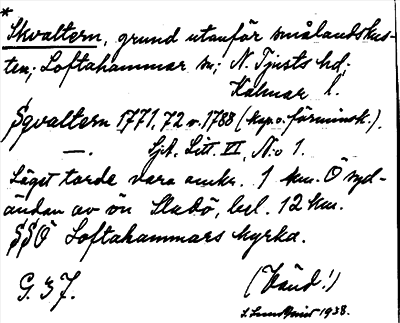 *
Skvaltern, grund utanför smålandskus-
ten; Loftahammar sn; N. Tjusts hd;
Kalmar l.
Sqvaltern 1771, 72 o. 1788 (kop. o. förminsk.).
—. Sjk. Litt. VI, N:o 1.
Läget torde vara omkr. 1 km. Ö syd-
ändan av ön Sladö, bel. 12 km.
SSÖ Loftahammars kyrka.
G. 37.
(Vänd!)
1938.